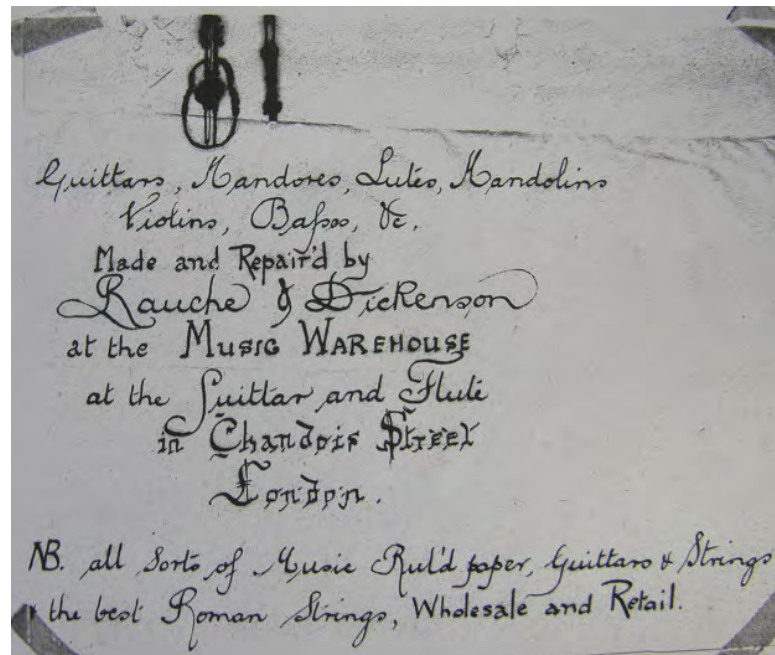 Guittars, Mandores, Lutes, Mandolins
Violins, Baſses, &c.
Made and Repair'd by
Rauche & Dickenson
at the MUSIC WAREHOUSE
at the Guittar and Flute
in Chandois Street
London.
NB. all Sorts of Music Rul'd paper, Guittars & Strings
& the best Roman Strings, Wholesale and Retail.